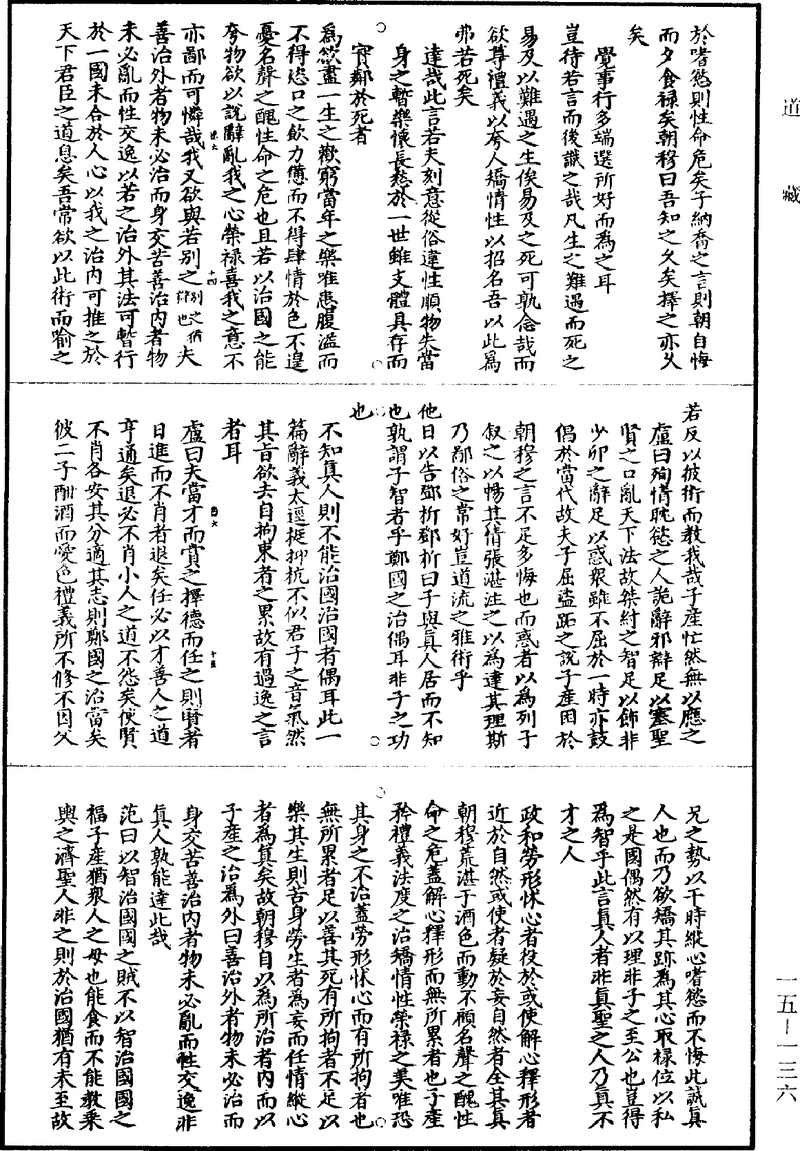 道藏
於嗜慾則性命危矣子納喬之言則朝自悔
而夕食祿矣朝穆曰吾知之久矣擇之亦久
矣
覺事行多端選所好而為之耳
豈待若言而後識之哉凡生之難遇而死之
易及以難遇之生俟易及之死可孰念哉而
欲尊禮義以夸人矯情性以招名吾以此為
弗若死矣
達哉此言若夫刻意從俗違性順物失當
身之暫樂懷長愁於一世雖支體具存而
實鄰於死者
為欲盡一生之歡窮當年之樂唯患腹溢而
不得恣口之飲力憊而不得肆情於色不遑
憂名聲之醜性命之危也且若以治國之能
夸物欲以說辭亂我之心榮祿喜我之意不
亦鄙而可憐哉我又欲與若別之別之猶辯也夫
善治外者物未必治而身交苦善治內者物
未必亂而性交逸以若之治外其法可暫行
於一國未合於人心以我之治內可推之於
天下君臣之道息矣吾常欲以此術而喻之
若反以彼術而教我哉子產忙然無以應之
盧曰殉情耽慾之人詭辭邪辯足以塞聖
賢之口亂天下法故桀紂之智足以飾非
少卯之辭足以惑衆雖不屈於一時亦鼓
倡於當代故夫子屈盜跖之說子產困於
朝穆之言不足多悔也而惑者以為列子
叙之以暢其情張湛注之以為達其理斯
乃鄙俗之常好豈道流之雅術乎
他日以告鄧析鄧析曰子與真人居而不知
也孰謂子智者乎鄭國之治偶耳非子之功
也
不知真人則不能治國治國者偶耳此一
篇辭義太逕挺抑抗不似君子之音氣然
其旨欲去自拘束者之累故有過逸之言
者耳
盧曰夫當才而賞之擇德而任之則賢者
日進而不肖者退矣任必以才善人之道
亨通矣退必不肖小人之道不怨矣使賢
不肖各安其分適其志則鄭國之治當矣
彼二子酣酒而愛色禮義所不修不因父
兄之勢以干時縱心嗜慾而不悔此誠真
人也而乃欲矯其跡為其心取祿位以私
之是國偶然有以理非子之至公也豈得
為智乎此言真人者非真聖之人乃真不
才之人
政和勞形怵心者役於或使解心釋形者
近於自然或使者疑於妄自然者全其真
朝穆荒湛于酒色而動不顧名聲之醜性
命之危蓋解心釋形而無所累者也子產
矜禮義法度之治矯情性榮祿之美唯恐
其身之不治蓋勞形怵心而有所拘者也
無所累者足以善其死有所拘者不足以
樂其生則苦身勞生者為妄而任情縱心
者為真矣故朝穆自以為所治者內而以
子產之治為外曰善治外者物未必治而
身交苦善治內者物未必亂而性交逸非
真人孰能達此哉
范曰以智治國國之賊不以智治國國之
福子產猶衆人之母也能食而不能教乘
輿之濟聖人非之則於治國猶有未至故
一五-一三六